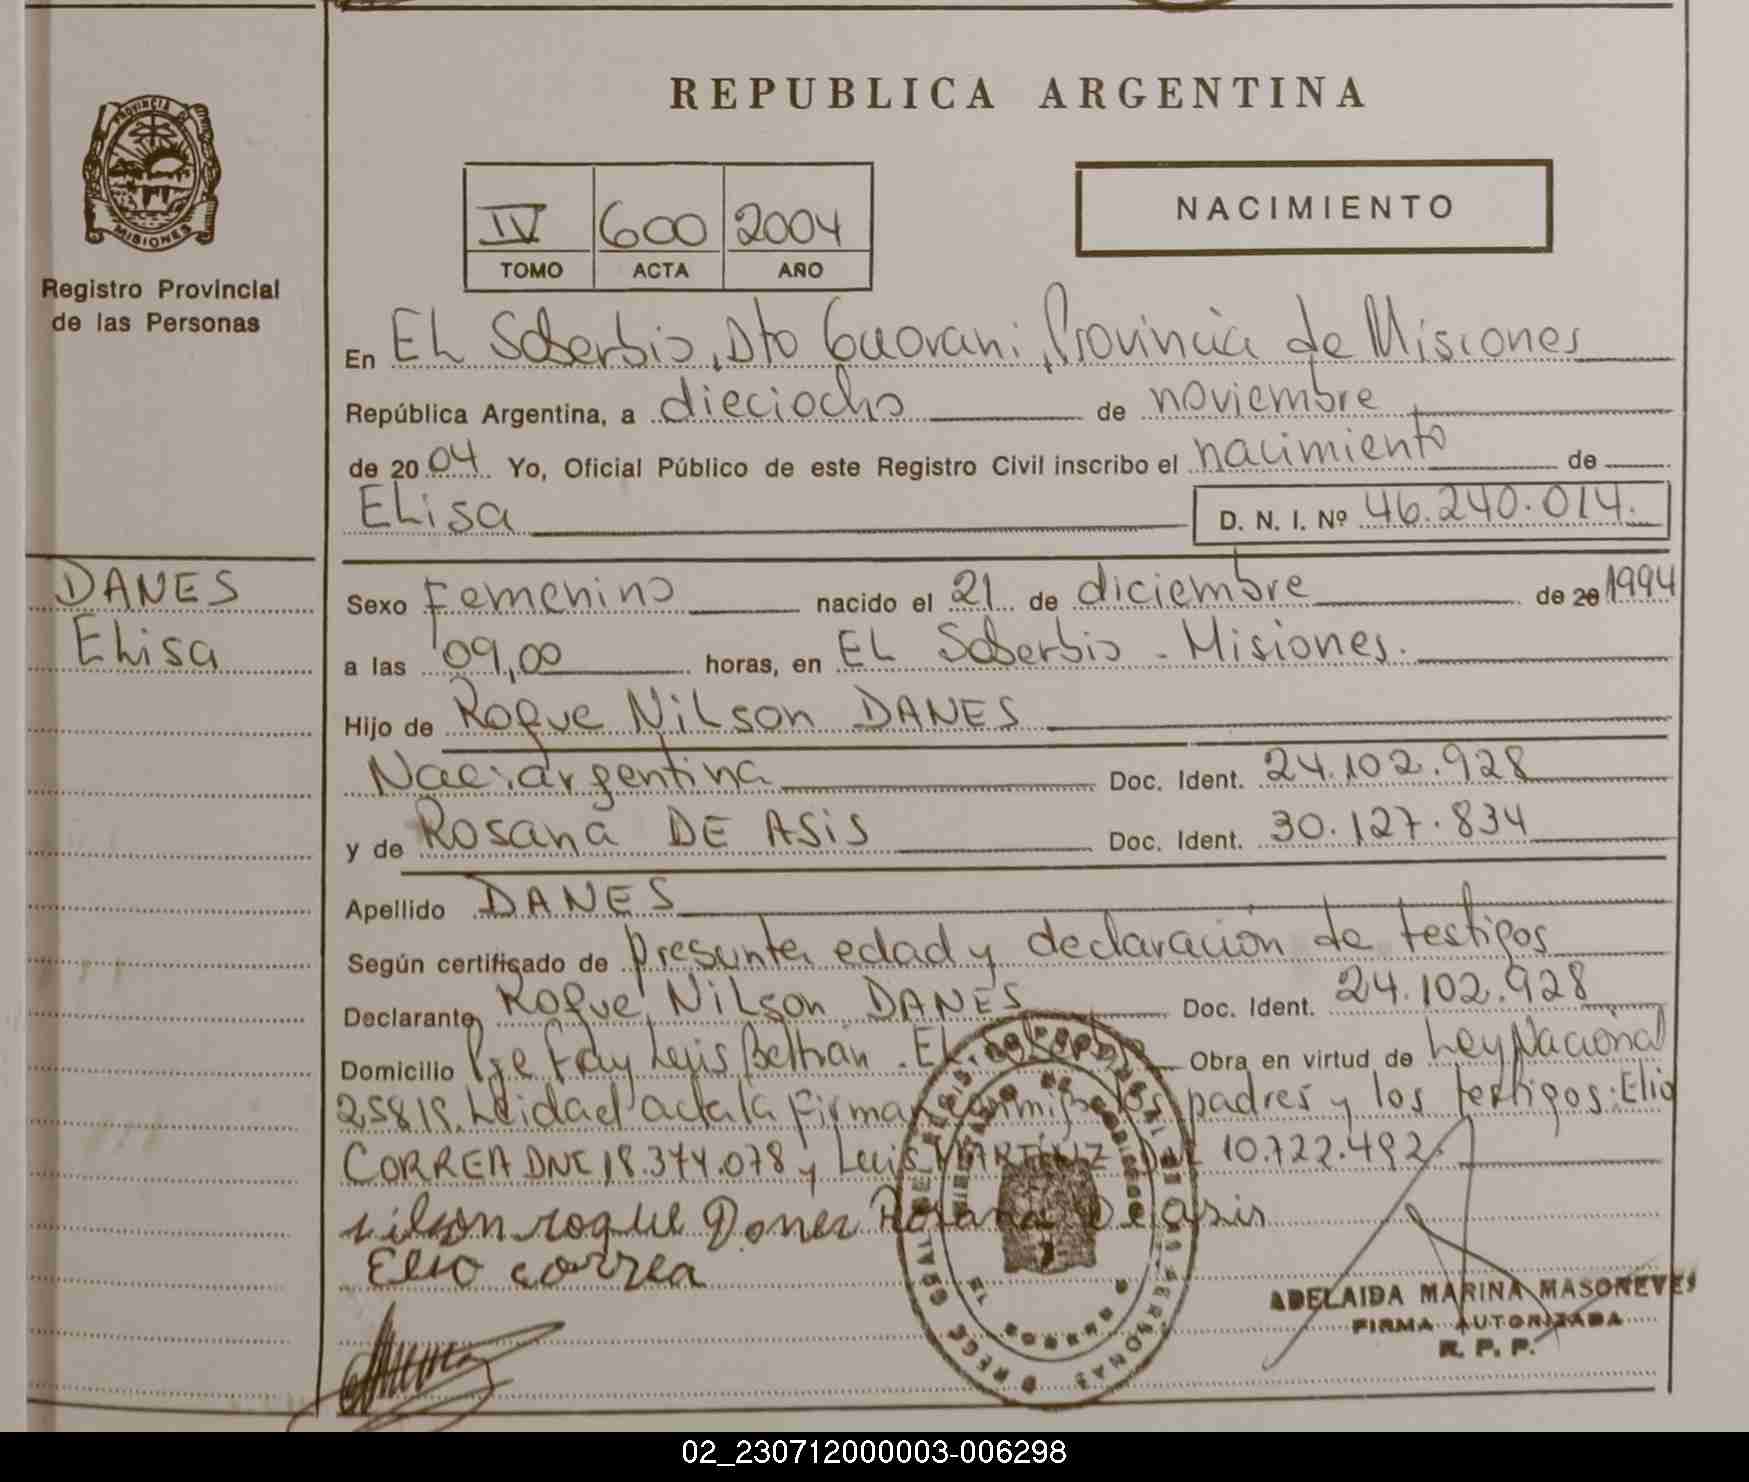 REPUBLICA ARGENTINA
PROVINCIA DE
MISIONES
Registro Provincial
de las Personas
IV 600 2004
TOMO ACTA AÑO
NACIMIENTO
En EL Soberbio, Dto Guarani, Provincia de Misiones
República Argentina, a dieciocho de noviembre
de 2004 Yo, Oficial Público de este Registro Civil inscribo el nacimiento de
Elisa D. N. I. Nº 46.240.014.
DANES
Elisa
Sexo Femenino nacido el 21 de diciembre de 20 1994
a las 09,00 horas, en EL Soberbio - Misiones.
Hijo de Roque Nilson DANES
Nac: argentina Doc. Ident. 24.102.928
y de Rosana DE ASiS Doc. Ident. 30.127.834
Apellido DANES
Según certificado de presunta edad y declaración de testigos
Declarante Roque Nilson DANES Doc. Ident. 24.102.928
Domicilio Pje Fray Luis Beltran. EL Soberbio Obra en virtud de Ley Nacional
25819. Leida el acta la firman conmigo los padres y los testigos: Elio
CORREA DNI 18.344.078 y Luis MARTINEZ DNI 10.722.492.
nilson roque Danes Rosana De asis
Elio correa
ADELAIDA MARINA MASONEVES
FIRMA AUTORIZADA
R. P. P.
02_230712000003-006298